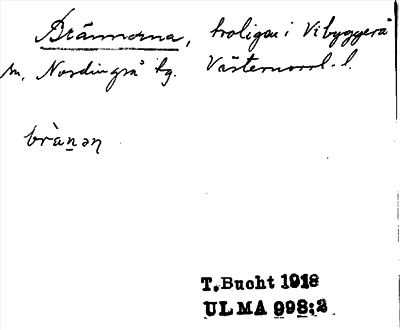 Brännorna, troligen i Vibyggerå
sn, Nordingrå tg. Västernorrl. l.
brànən
T. Bucht 1918
ULMA 998:2